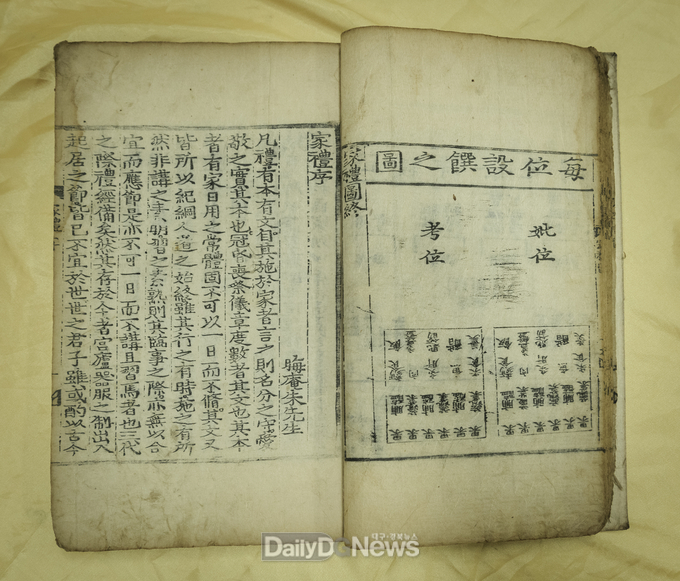 每位設饌之圖
妣位
考位
果果果果果果
果果果果果果
家禮圖終
家禮序
晦庵朱先生
凡禮有本有文自其施於家者言之則名分之守愛
敬之實其本也冠昏喪祭儀章度數者其文也其本
者有家日用之常體固不可以一日而不脩其文又
皆所以紀綱人道之始終雖其行之有時施之有所
然非講之素明習之素熟則其臨事之際亦無以合
宜而應節是亦不可一日而不講且習焉者也三代
之際禮經備矣然其存於今者宮廬器服之制出入
起居之節皆已不宜於世世之君子雖或酌以古今
대구·경북뉴스
DailyDGNews